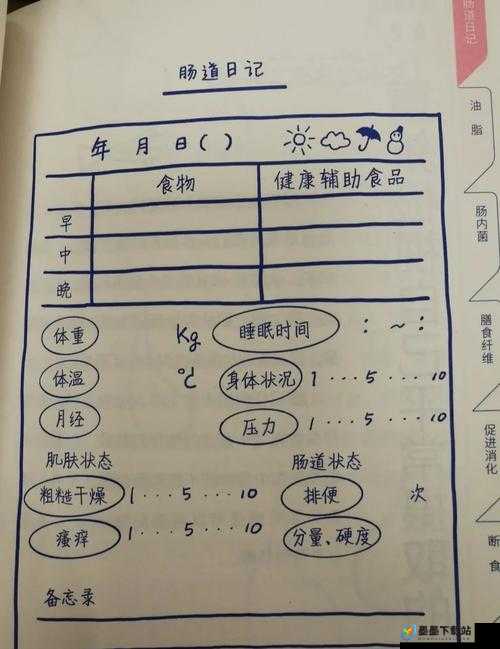 肠道日记
年 月 日( )
食物 健康辅助食品
早
中
晚
体重 Kg 睡眠时间 : ~ :
体温 ℃ 身体状况 1 ... 5 ... 10
月经 压力 1 ... 5 ... 10
肌肤状态 肠道状态
粗糙干燥 1 ... 5 ... 10 排便 次
瘙痒 1 ... 5 ... 10 分量、硬度
备忘录
肠道日记
油脂
肠内菌
膳食纤维
促进消化
断食
墨墨下载站